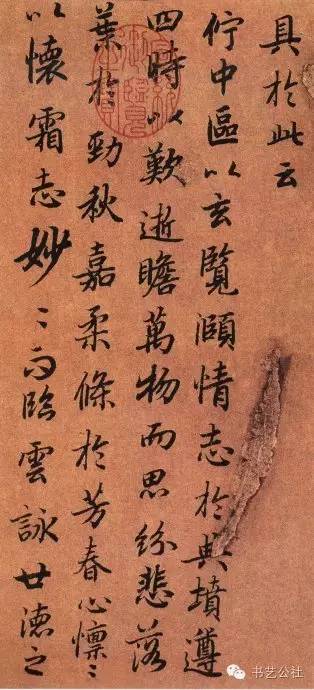 具於此云
佇中區以玄覽頤情志於典墳遵
四時以歎逝瞻萬物而思紛悲落
葉於勁秋嘉柔條於芳春心懍〻
以懷霜志妙〻而臨雲詠世德之
书艺公社